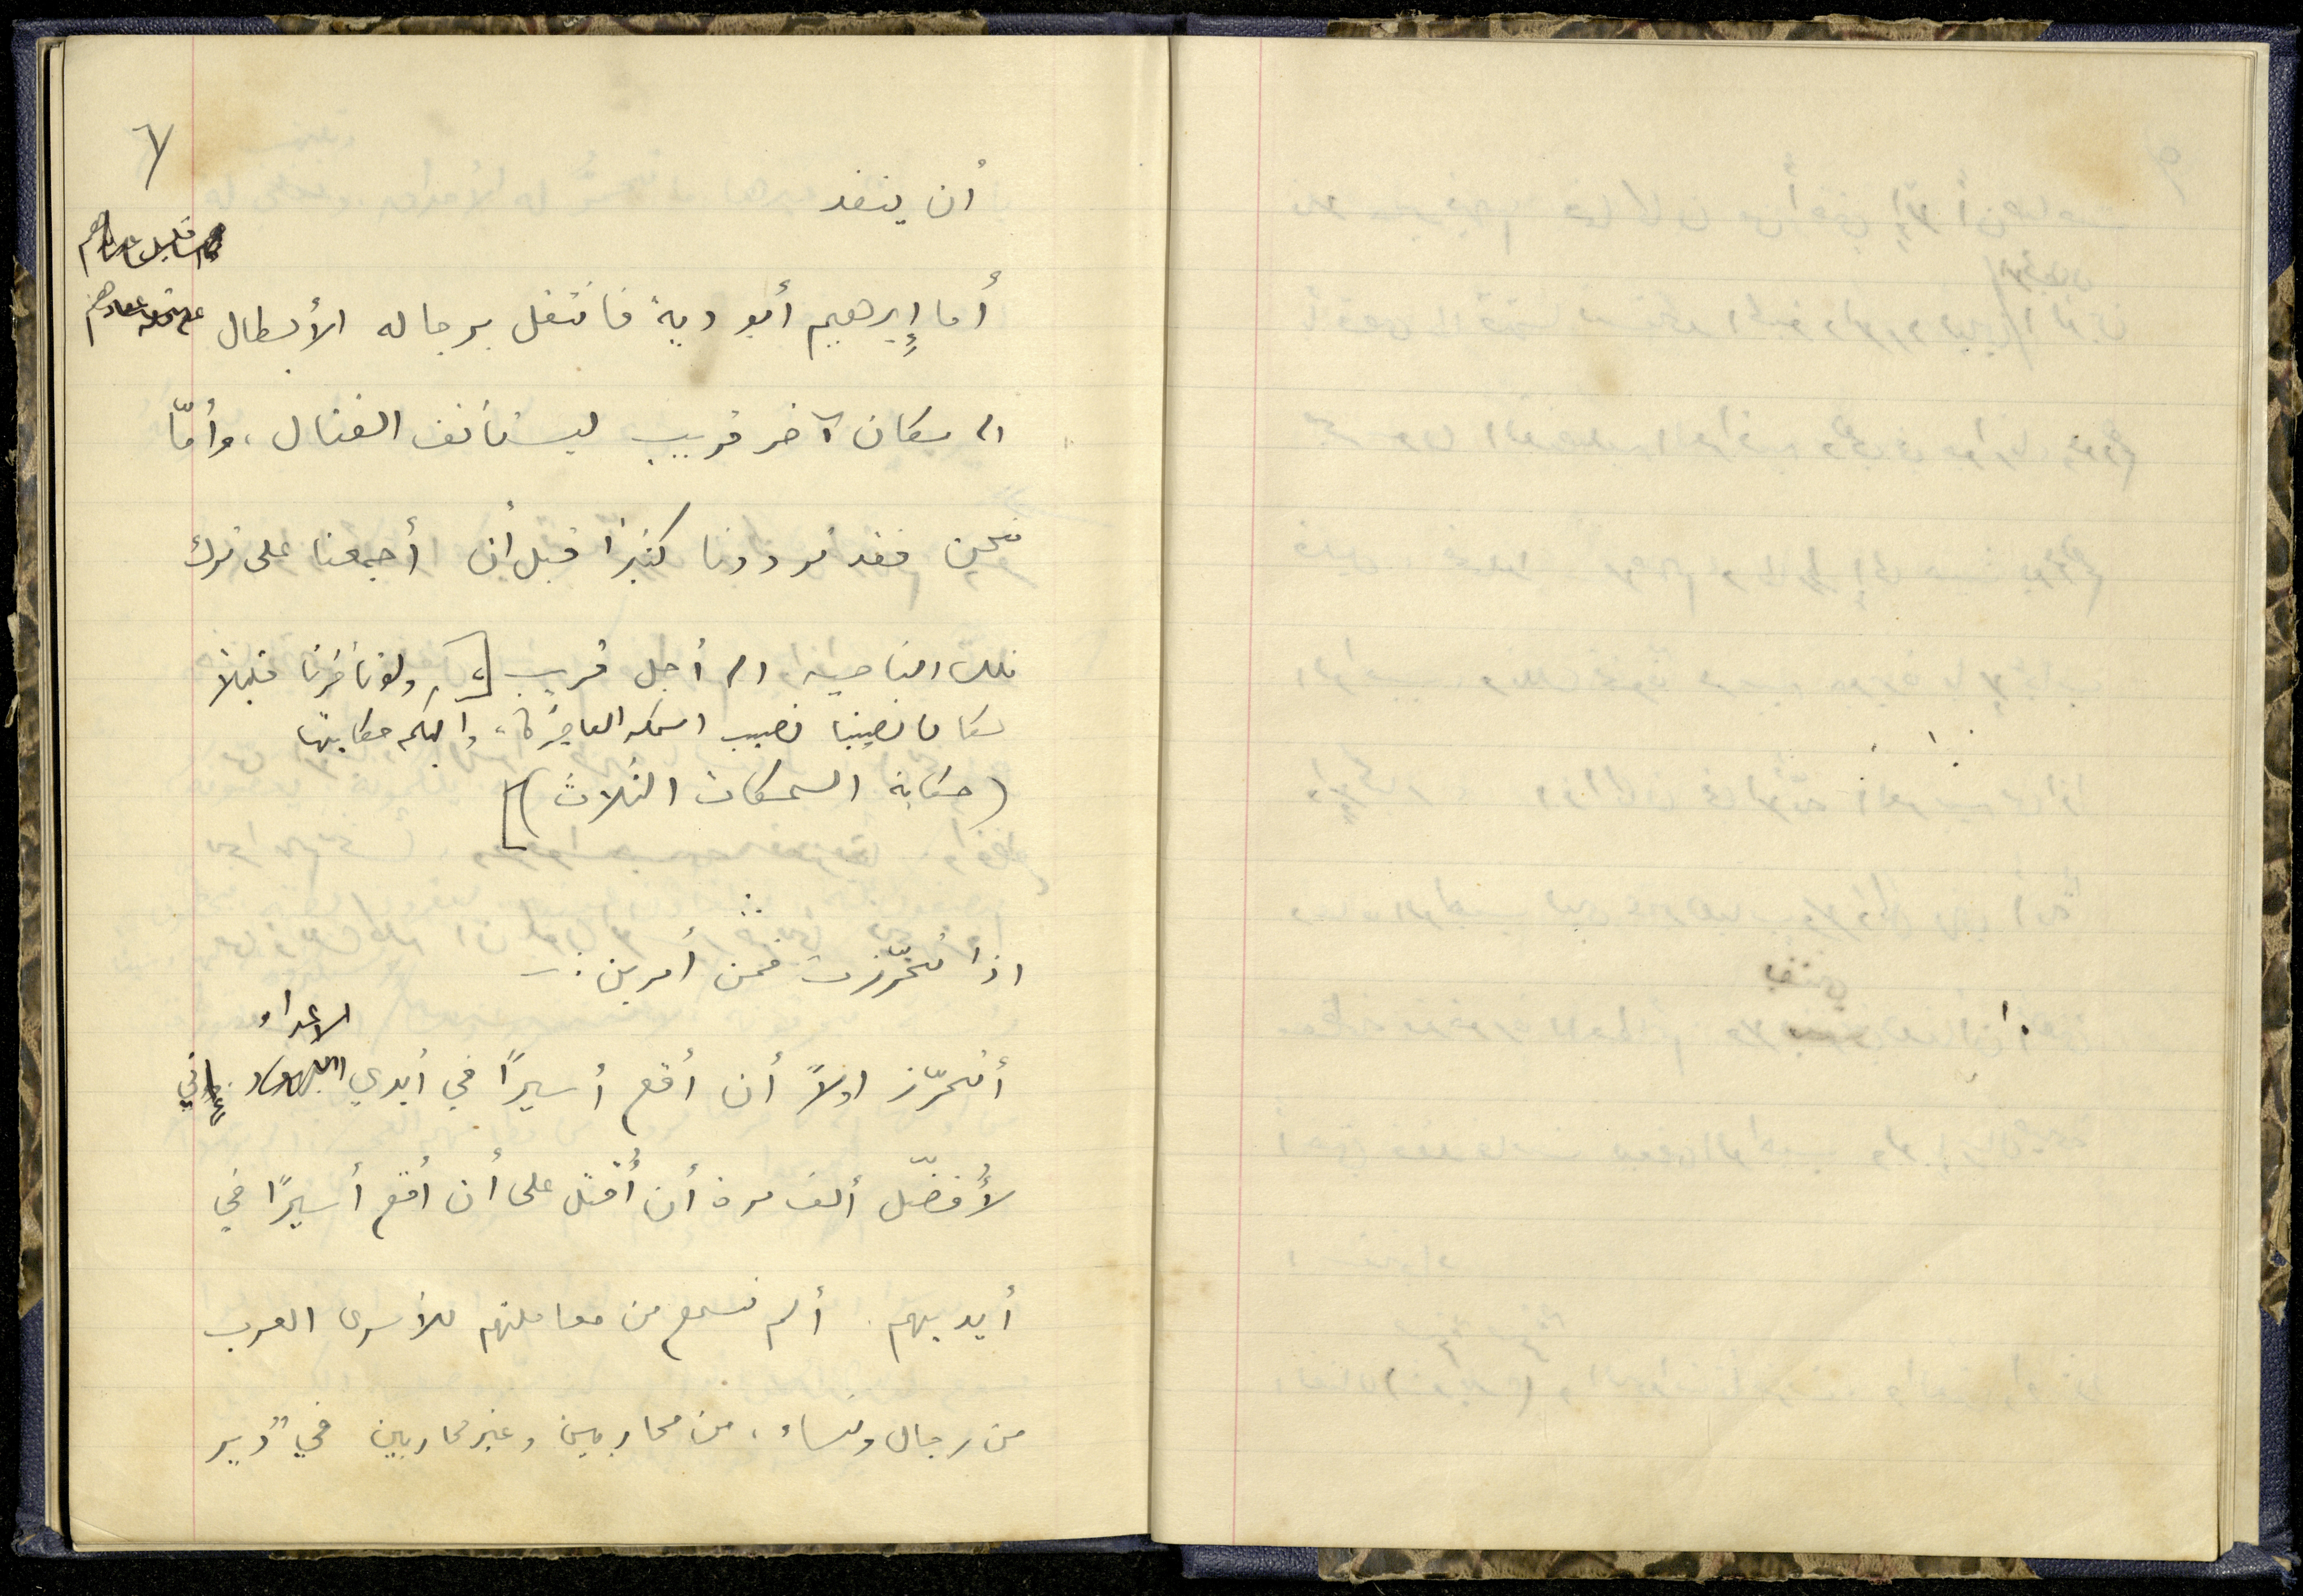 ٧
أن ينفد
أما إبرهيم أبو دية فانتقل برجاله الأبطال
الى مكان آخر قريب ليستأنف القتال، وأمّا
نحن فقد ترددنا كثيراً قبل أن أجمعنا على ترك
تلك الناحية الى أجل قريب [، ولو تأخرنا قليلاً
لكان نصيبنا نصيب السمكة العاجزة، واليكم حكايتها
(حكاية السمكات الثلاث)]
اذا تحرّزت فمن أمرين :ـ
الاعداء
أتحرّز اولاً أن أقع أسيراً في أيدي اليهود. إني
لأُفضّل ألف مرة أن أُقتل على أن أقع أسيرًا في
أيديهم. ألم نسمع من معاملتهم للأسرى العرب
من رجال ونساء، من محاربين وغير محاربين في "دير